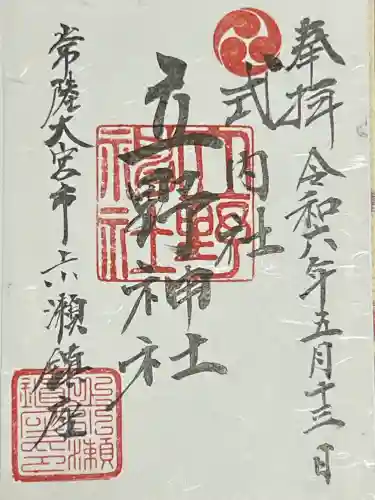 奉拝 令和六年五月十三日
式内社
立野神社
常陸大宮市上小瀬鎮座
立野神社